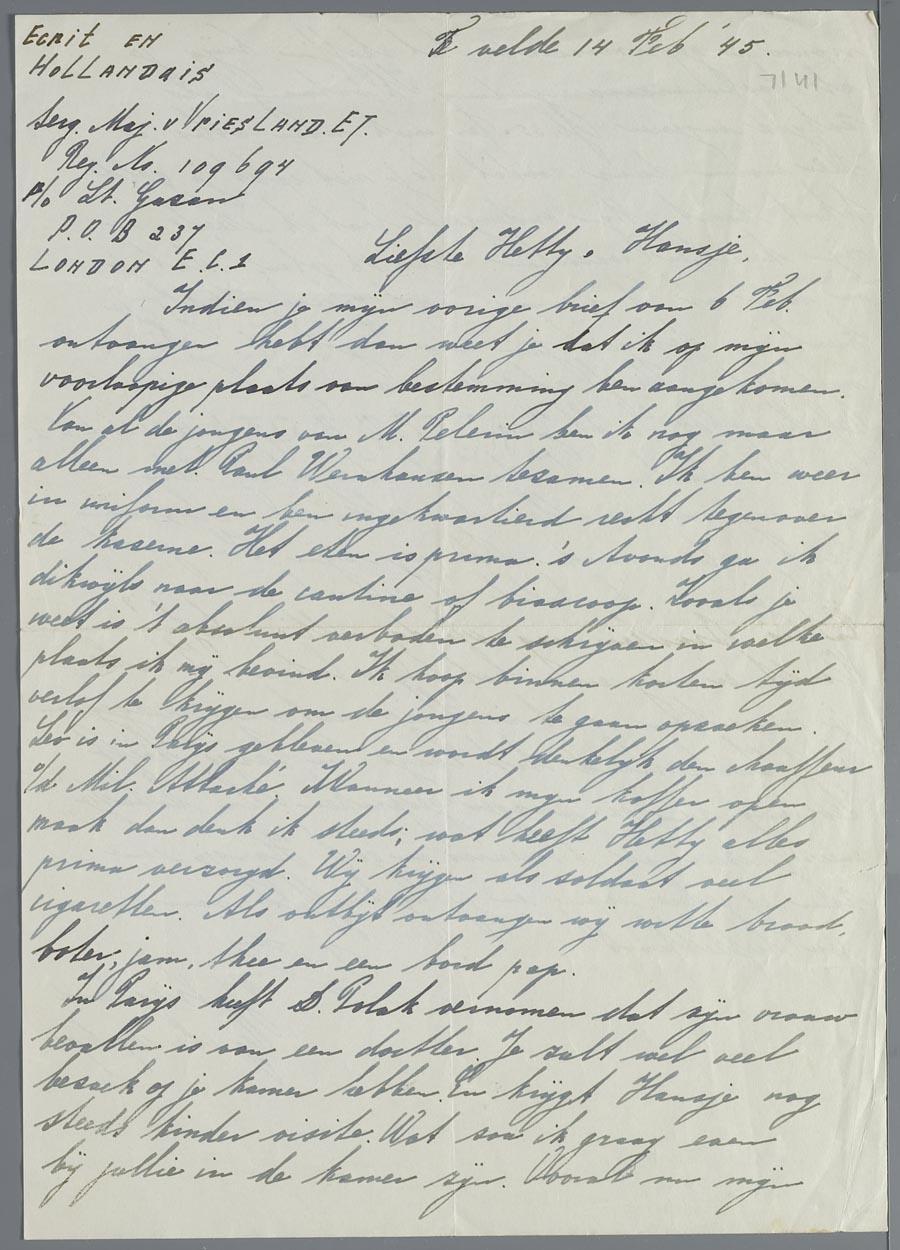 Ecrit en
Hollandais
Te velde 14 Feb '45.
Serg. Maj. v Vriesland. E.J.
Reg. No. 109694
p/o Lt. Gazan
P.O. B 237
London E.C.1
Liefste Hetty, Hansje,
Indien je mijn vorige brief van 6 Feb.
ontvangen hebt dan weet je dat ik op mijn
voorloopige plaats van bestemming ben aangekomen.
Van al de jongens van M. Pelerin ben ik nog maar
alleen met Paul Wernhausen tesamen. Ik ben weer
in uniform en ben ingekwartierd recht tegenover
de kaserne. Het eten is prima. 's Avonds ga ik
dikwijls naar de cantine of bioscoop. Zooals je
weet is 't absoluut verboden te schrijven in welke
plaats ik mij bevind. Ik hoop binnen korten tijd
verlof te krijgen om de jongens te gaan opzoeken.
Leo is in Parijs gebleven en wordt denkelijk den chauffeur
v/d Mil. Attaché. Wanneer ik mijn koffer open
maak dan denk ik steeds; wat heeft Hetty alles
prima verzorgd. Wij krijgen als soldaat veel
cigaretten. Als ontbijt ontvangen wij witte brood,
boter, jam, thee en een bord pap.
In Parijs heeft S. Polak vernomen dat zijn vrouw
bevallen is van een dochter. Je zult wel veel
bezoek op je kamer hebben. En krijgt Hansje nog
steeds kinder visite. Wat zou ik graag even
bij jullie in de kamer zijn. Vooral nu mijn